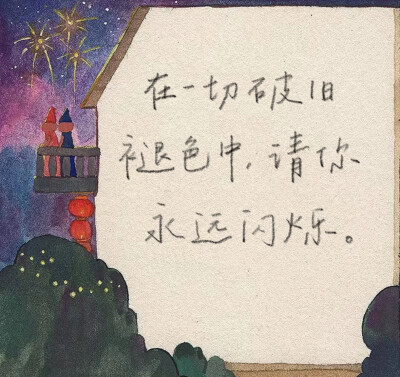 在一切破旧
褪色中，请你
永远闪烁。